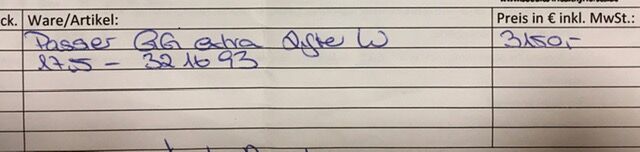 ck. Ware/Artikel: Preis in € inkl. MwSt.:
Passier GG extra W 3150,-
17,5 - 321693